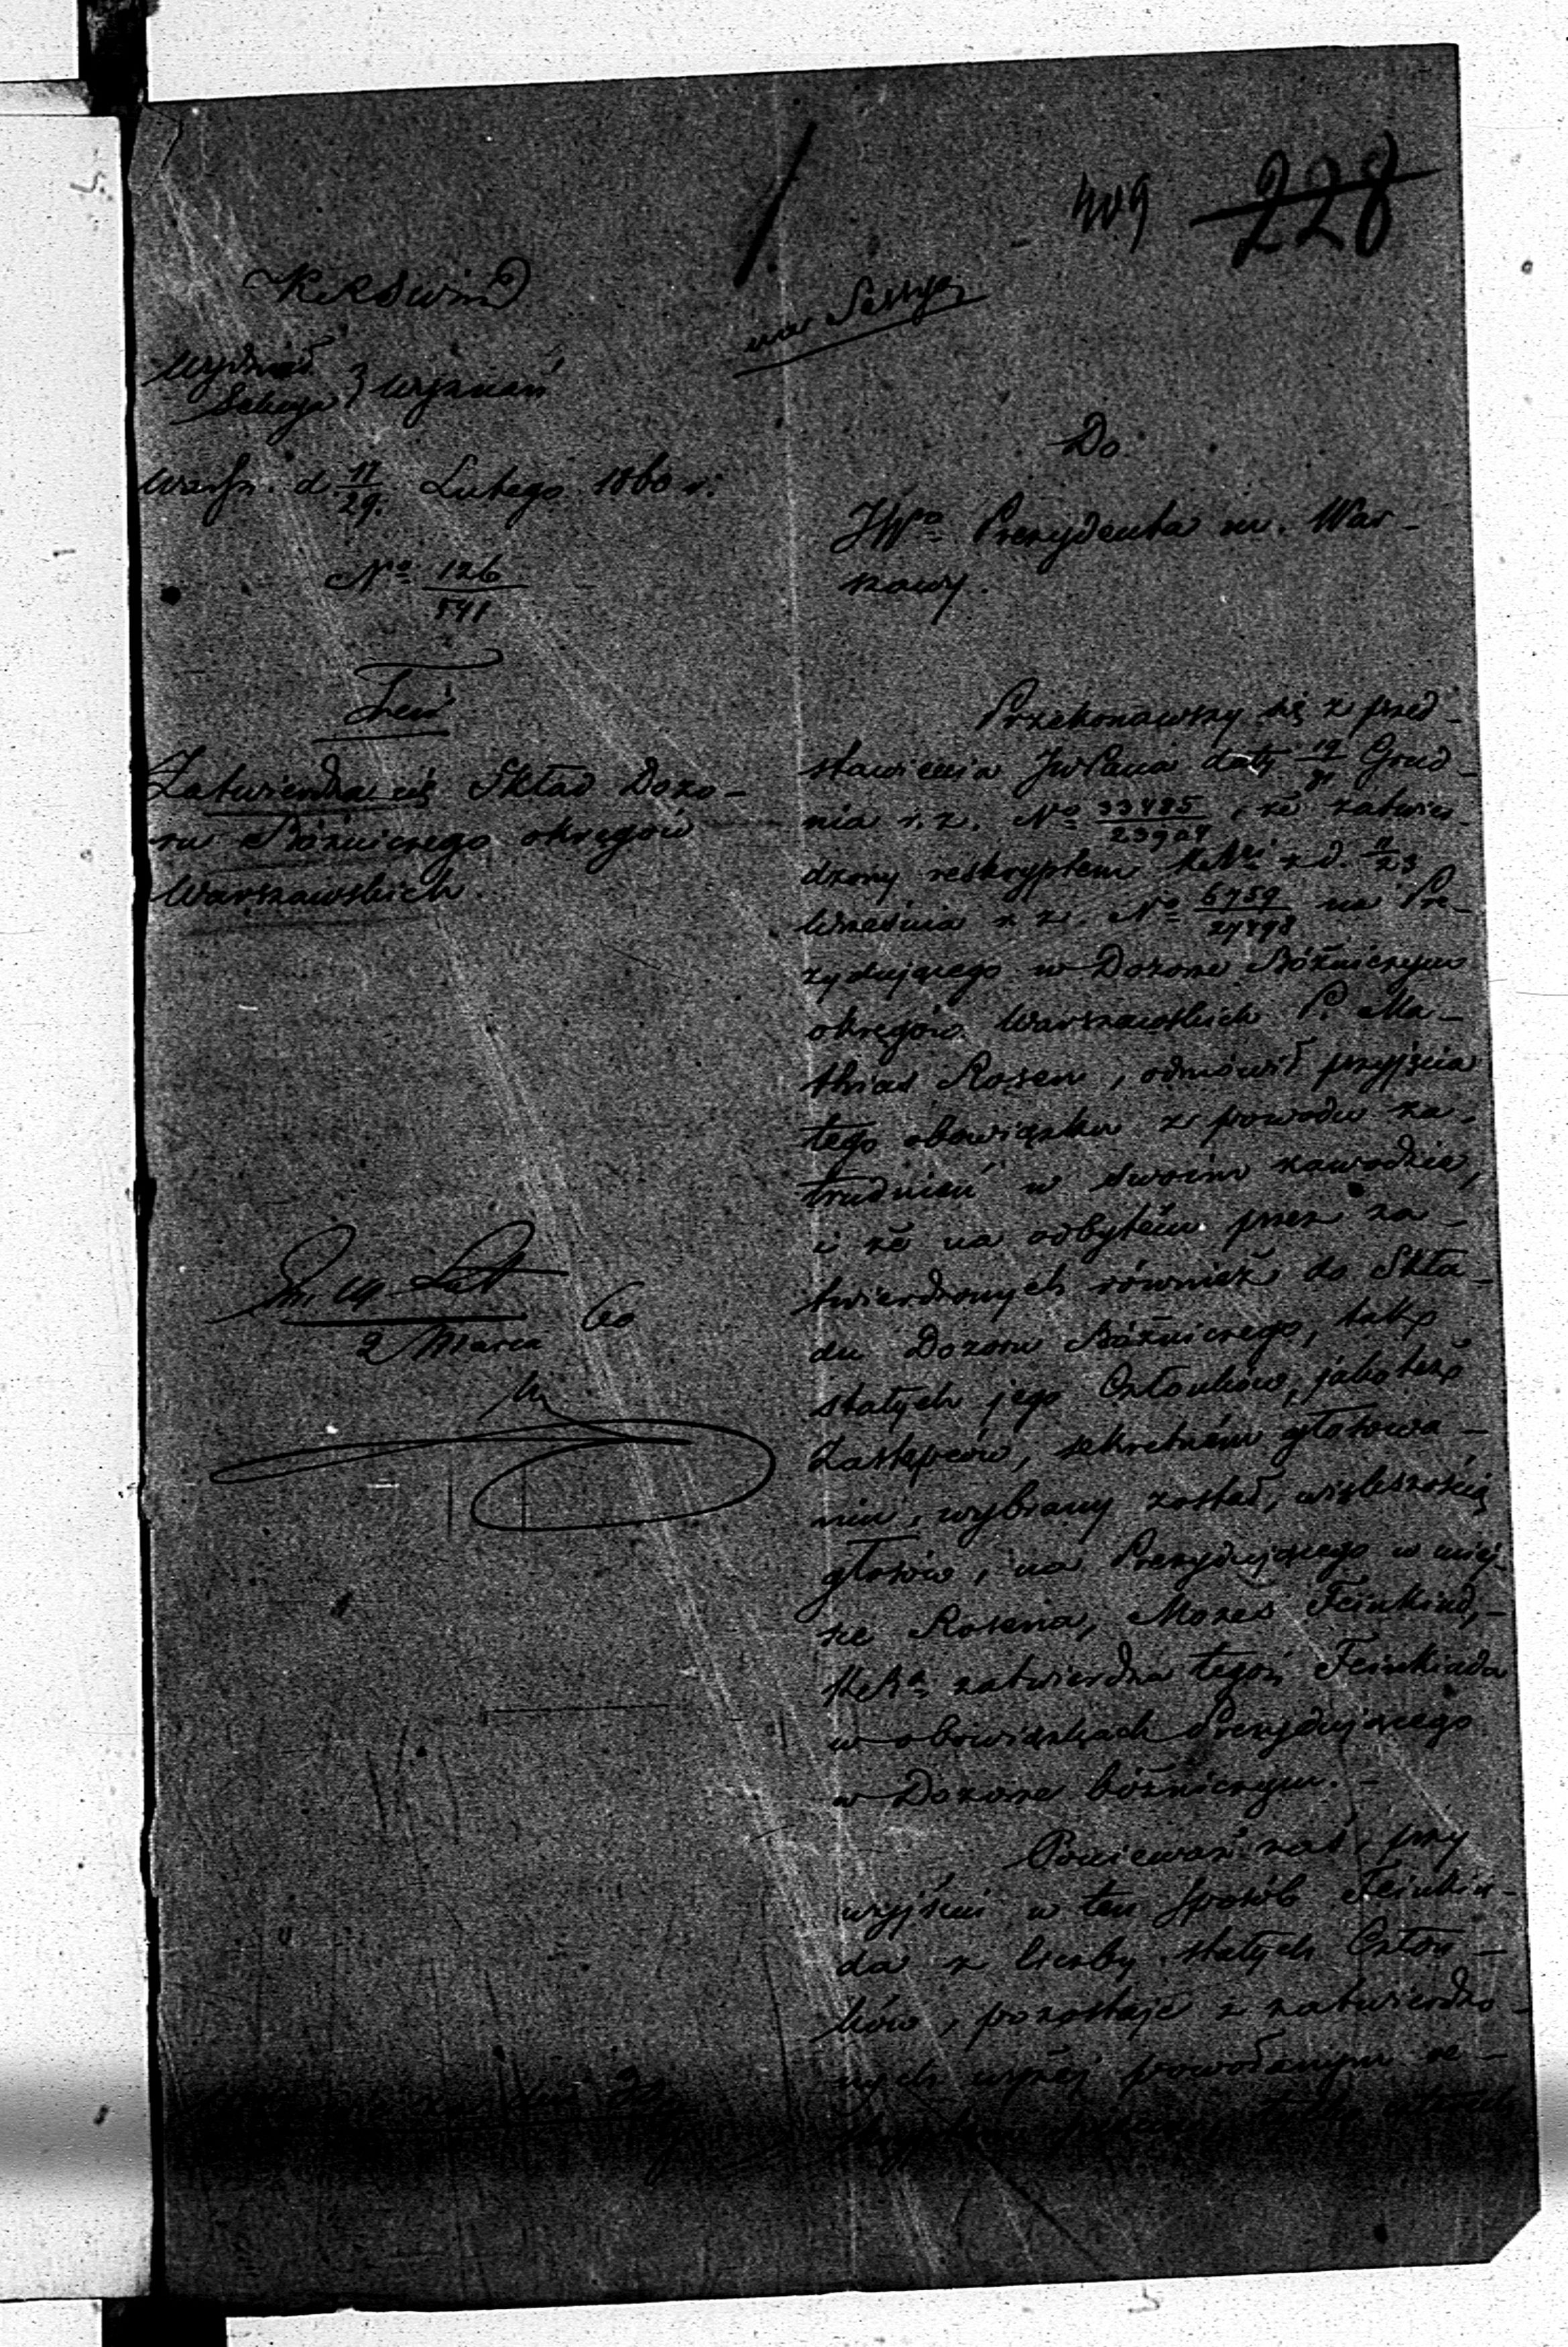 409 228
KRSWiD
na Sessyą
Wydział
Sekcja } wyznań
Warsz. d. 17/29. Lutego 1860 r.
No 126/541
Treść
Zatwierdza się Skład Dozo-
ru Bóżniczego okręgów
Warszawskich.
Pr. 19 Lut
2 Marca 60
Do
JWo Prezydenta m. War-
szawy.
Przekonawszy się z przed-
stawienia JWPana daty 19/31 Grud-
nia r. z. No 33485/23904, że zatwier-
dzony reskryptem z d. 11/23
Września r. z. No 6759/27898 na Pre-
zydującego w Dozorze Bóżniczym
okręgów Warszawskich P. Ma-
thias Rosen, odmówił przyjęcia
tego obowiązku z powodu za-
trudnień w swoim zawodzie,
i że na odbytém przez za-
twierdzonych również do Skła-
du Dozoru Bóżniczego, tak
stałych jego Członków, jakoteż
Zastępców, sekretném głosowa-
niu, wybrany został, większością
głosów, na Prezydującego w miej-
sce Rosena, Mozes Feinkind,-
zatwierdza tegoż Feinkinda
w obowiązkach Prezydującego
w Dozorze bóżniczym.-
Ponieważ zaś, przy
wyjściu w ten sposób Feinkin-
da z liczby stałych Człon-
ków, pozostaje z zatwierdzo-
nych wyżej powołanym re-
tylko